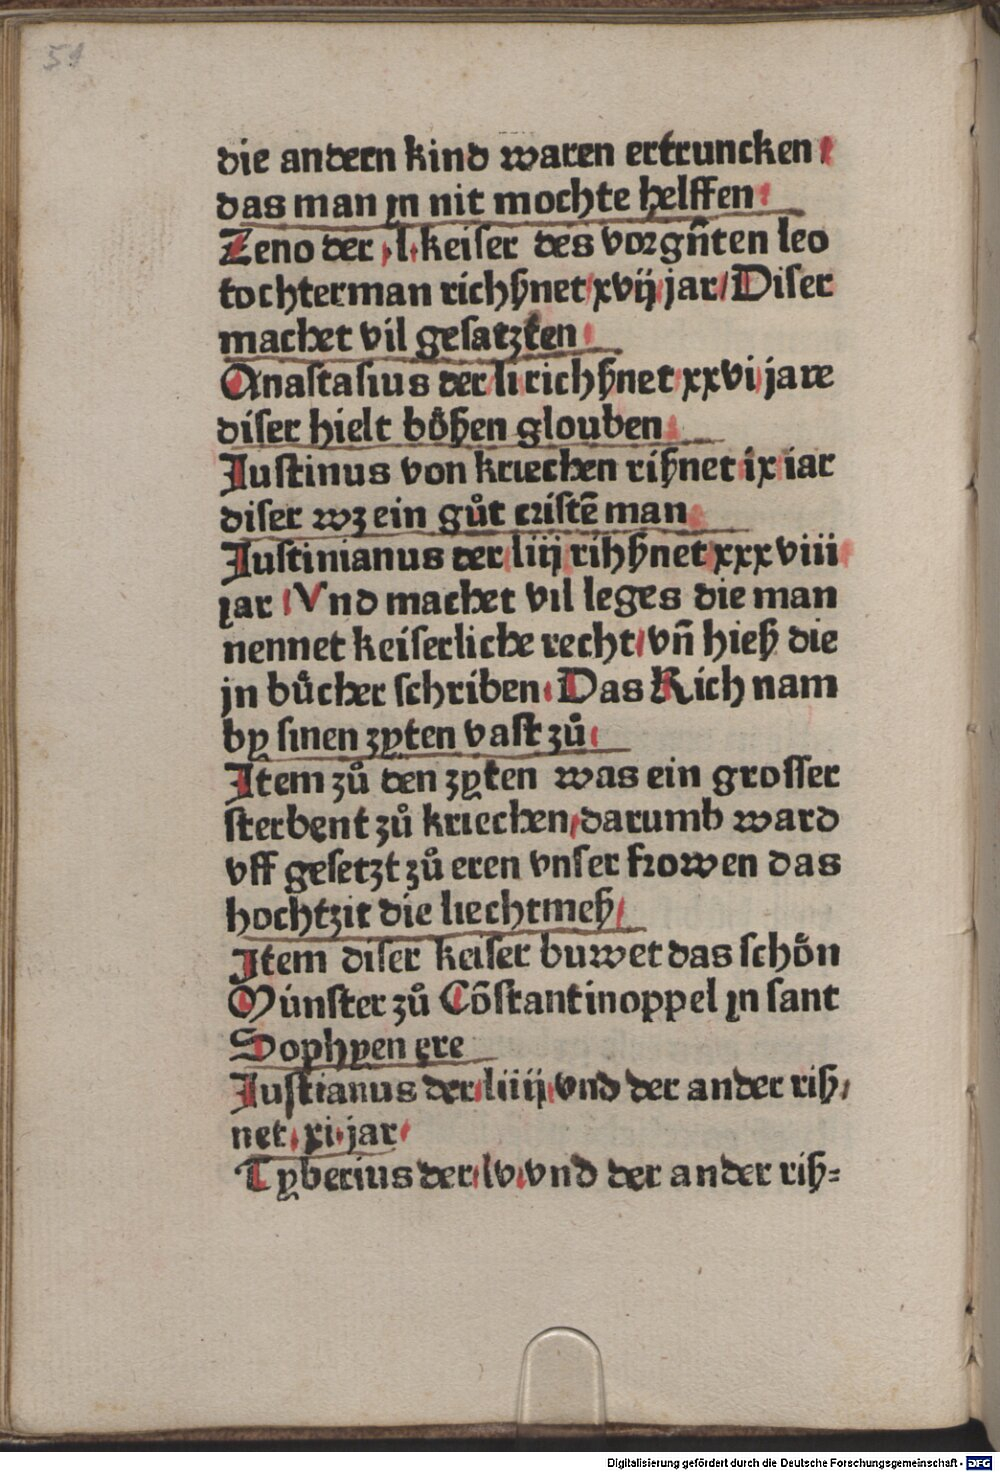 51
die andern kind waren ertruncken /
das man jn nit mochte helffen ·
Zeno der · l · keiser des vorgn̄ten leo
tochterman richßnet / xvij / jar / Diser
machet vil gesatzten /
Anastasius der / li richßnet xxvi jare
diser hielt bößen glouben
Justinus von kriechen rißnet ix iar
diser wz ein gůt cristē man
Justinianus der liij rihßnet xxxviii
jar / Vnd machet vil leges die man
nennet keiserliche recht / vn̄ hieß die
jn bůcher schriben · Das Rich nam
by sinen zyten vast zů /
Item zů den zyten was ein grosser
sterbent zů kriechen / darumb ward
vff gesetzt zů eren vnser frowen das
hochtzit die liechtmeß /
Item diser keiser buwet das schön
Múnster zů Cōstantinoppel jn sant
Sophyen ere
Justianus der / liiij / vnd der ander riß /
net · xi · jar /
Tyberius der / lv / vnd der ander riß=
Digitalisierung gefördert durch die Deutsche Forschungsgemeinschaft - DFG